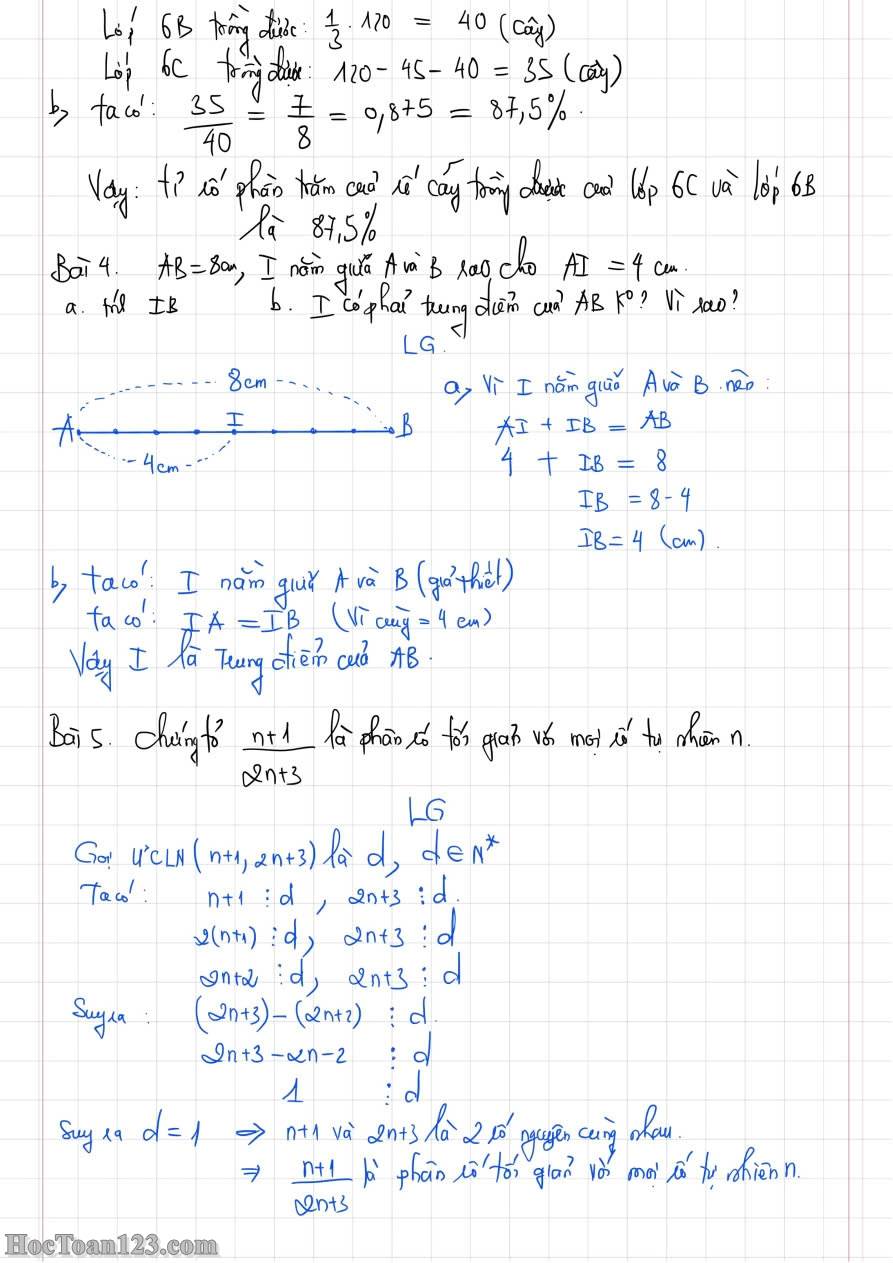 Lớp 6B trồng được: 1/3 . 120 = 40 (cây)
Lớp 6C trồng được: 120 - 45 - 40 = 35 (cây)
b, ta có: 35/40 = 7/8 = 0,875 = 87,5%.
Vậy: tỉ số phần trăm của số cây trồng được của lớp 6C và lớp 6B
là 87,5%
Bài 4. AB = 8cm, I nằm giữa A và B sao cho AI = 4 cm.
a. tính IB b. I có phải trung điểm của AB K°? Vì sao?
LG.
8cm
A I B
4cm
a, Vì I nằm giữa A và B nên:
AI + IB = AB
4 + IB = 8
IB = 8 - 4
IB = 4 (cm).
b, ta có: I nằm giữa A và B (giả thiết)
ta có: IA = IB (Vì cùng = 4 cm)
Vậy I là trung điểm của AB.
Bài 5. Chứng tỏ n+1/2n+3 là phân số tối giản với mọi số tự nhiên n.
LG
Gọi ƯCLN (n+1, 2n+3) là d, d ∈ N*
Ta có: n+1 ⋮ d, 2n+3 ⋮ d.
2(n+1) ⋮ d, 2n+3 ⋮ d
2n+2 ⋮ d, 2n+3 ⋮ d
Suy ra: (2n+3) - (2n+2) ⋮ d.
2n+3 - 2n - 2 ⋮ d
1 ⋮ d
Suy ra d = 1 ⇒ n+1 và 2n+3 là 2 số nguyên cùng nhau.
⇒ n+1/2n+3 là phân số tối giản với mọi số tự nhiên n.
HocToan123.com